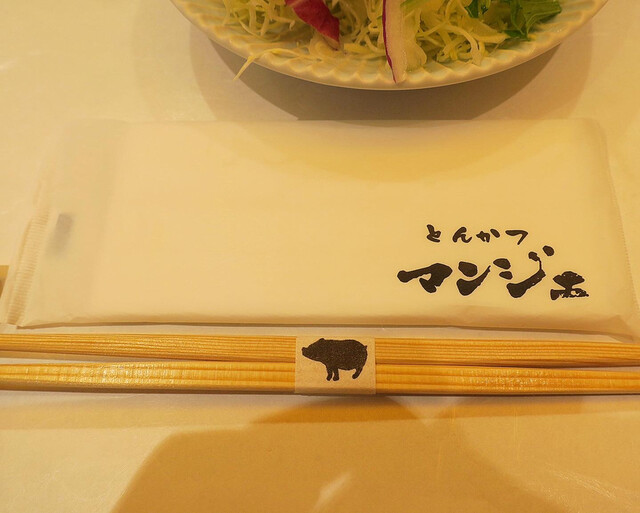 とんかつ
マンジェ